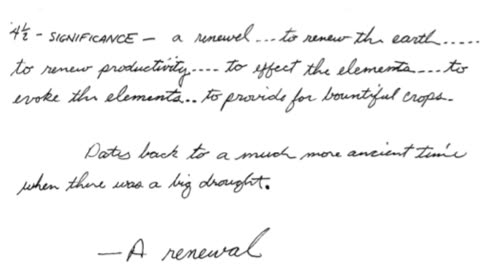 4½ - SIGNIFICANCE - a renewel....to renew the earth.....
to renew productivity.... to effect the elements....to
evoke the elements... to provide for bountiful crops.
Dates back to a much more ancient time
when there was a big drought.
- A renewal